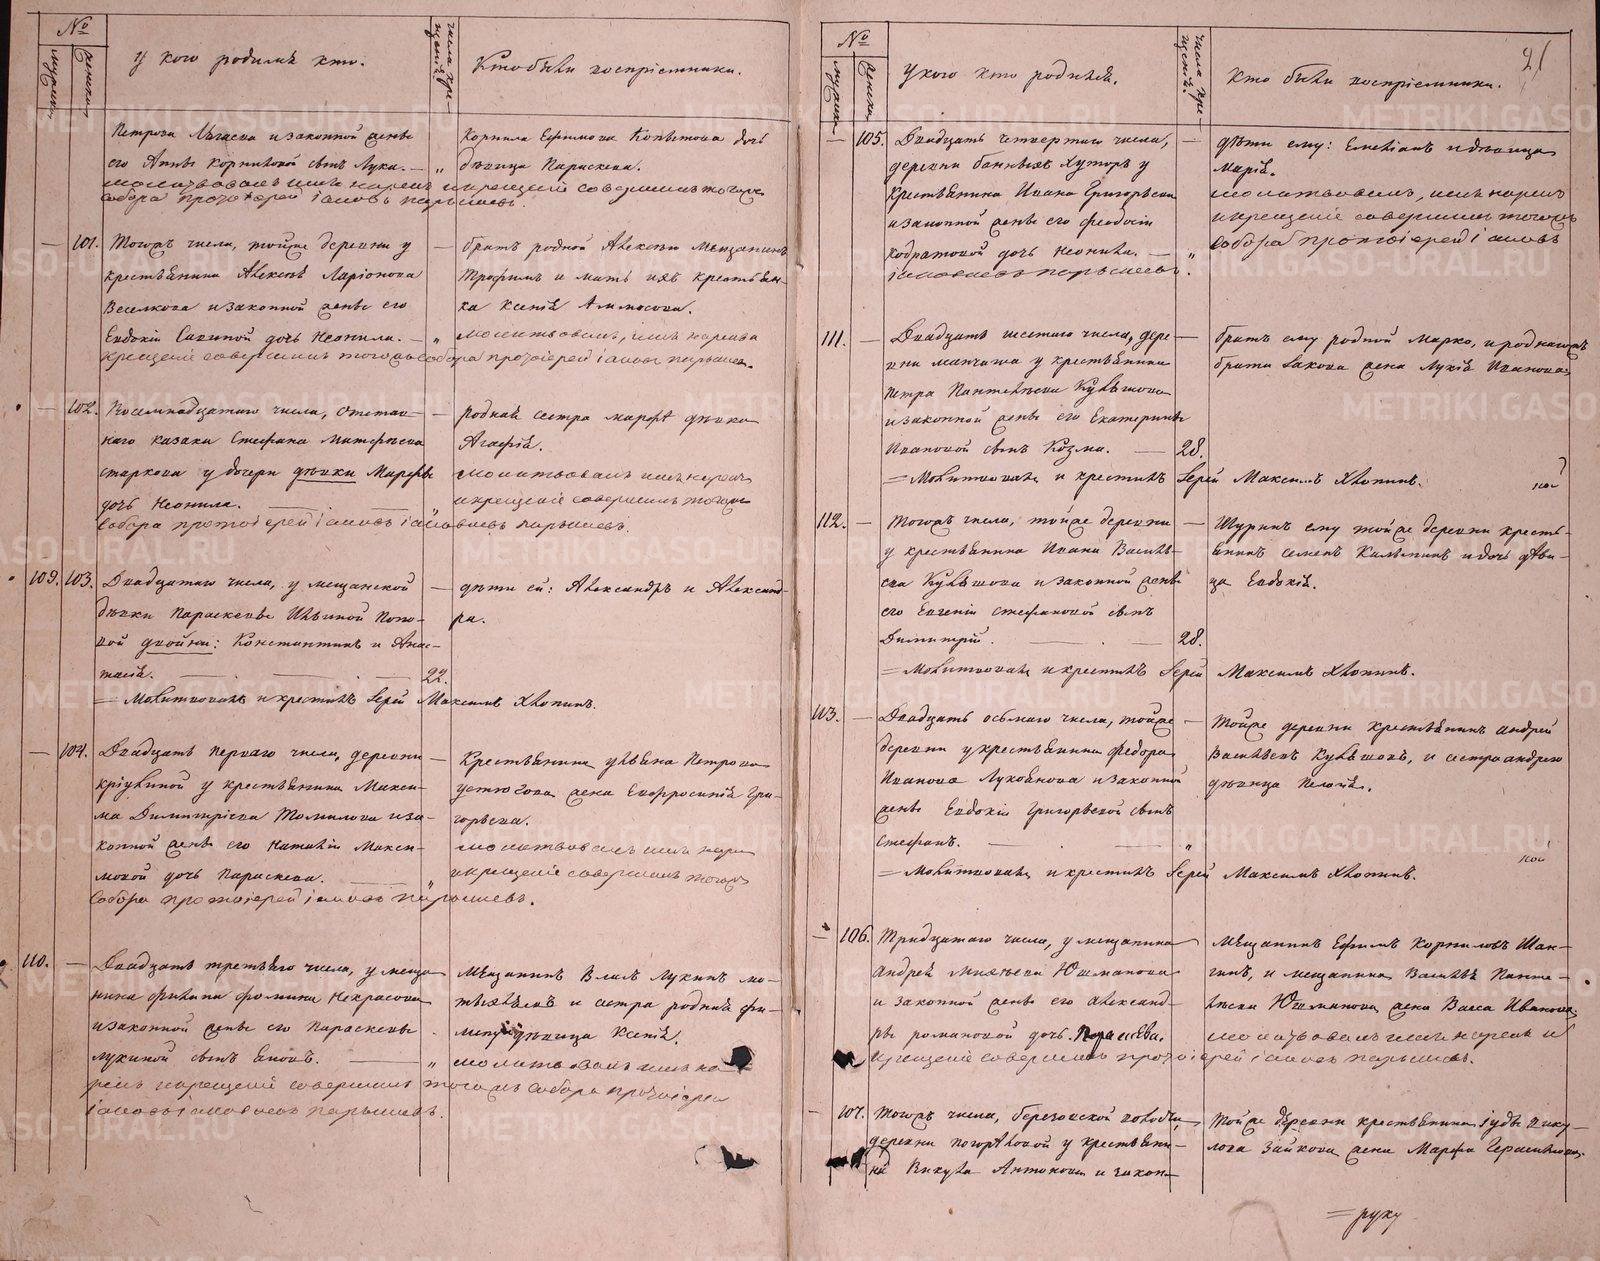 №
мужеск.
женска.
У кого родился кто.
числа крещенія
Кто были воспріемники.
Петрова и законной жены
его Анны Корниловой сынъ Лука. — „
Корнила Ефимова дочь
дѣвица Параскева.
молитвовалъ имя нарекъ и крещеніе совершилъ тогожъ
собора протоіерей Іаковъ Парышевъ.
— 101. Тогожъ числа, тойже деревни у
крестьянина Алексѣя Ларіонова
Веселкова и законной жены его
Евдокіи Савиной дочь Неонила. — „
братъ родной Алексѣю Мещанинъ
Трофимъ и мать ихъ крестьян-
ка Ксенія Аммосова.
молитвовалъ, имя нарекъ
крещеніе совершилъ тогожъ собора протоіерей Іаковъ Парышевъ.
— 102. Восемнадцатаго числа, отстав-
наго казака Стефана Матфѣева
Старкова у дочери дѣвки Марфы
дочь Неонила. — „
родная сестра Марфѣ дѣвка
Агафія.
молитвовалъ имя нарекъ
и крещеніе совершилъ тогожъ
собора протоіерей Іаковъ Іаковлевъ Парышевъ.
109. 103. Двадцатаго числа, у мещанской
дѣвки Параскевы Ильиной Попо-
вой двойни: Константинъ и Анас-
тасія. — 22.
дѣти ей: Александръ и Александ-
ра.
= Молитвовалъ и крестилъ Іерей Максимъ Хлопинъ.
— 104. Двадцать перваго числа, деревни
у крестьянина Макси-
ма Димитріева Томилова и за-
конной жены его Наталіи Макси-
мовой дочь Параскева. — „
Крестьянина Ульяна Петрова
Устюгова жена Евфросинія Гри-
горьева.
молитвовалъ имя нарекъ
и крещеніе совершилъ тогожъ
собора протоіерей Іаковъ Парышевъ.
110. — Двадцать третьяго числа, у меща-
нина Филипа Фомина Некрасова
и законной жены его Параскевы
Лукиной сынъ — „
Мещанинъ Власъ Лукинъ
и сестра родная Фи-
дѣвица Ксенія.
молитвовалъ имя на-
рекъ и крещеніе совершилъ тогожъ собора протоіерей
Іаковъ Іаковлевъ Парышевъ.
21
№
мужеска
женска
У кого кто родился.
числа крещенія.
Кто были воспріемники.
— 105. Двадцать четвертаго числа,
деревни банныхъ хуторъ у
крестьянина Ивана Григорьева
и законной жены его Феодосіи
Кодратовой дочь Неонила. — „
дѣти ему: Емеліанъ и дѣвица
Марія.
молитвовалъ, имя нарекъ
и крещеніе совершилъ тогожъ
собора протоіерей Іаковъ
Іаковлевъ Парышевъ.
111. — Двадцать шестаго числа, дере-
вни Манчажа у крестьянина
Петра Пантелѣева Кулѣшова
и законной жены его Екатерины
Ивановой сынъ Козма. — 28.
братъ ему родной Марко, и роднаго
брата Іакова жена Лукія Иванова.
= Молитвовалъ и крестилъ Іерей Максимъ Хлопинъ.
112. — Тогожъ числа, тойже деревни
у крестьянина Ивана Василь-
ева Кулѣшова и законной жены
его Евгеніи Стефановой сынъ
Димитрій. — 28.
Шуринъ ему тойже деревни кресть-
янинъ Семенъ и дочь дѣви-
ца Евдокія.
= Молитвовалъ и крестилъ Іерей Максимъ Хлопинъ.
113. — Двадцать осьмаго числа, тойже
деревни у крестьянина Федора
Иванова Лукоянова и законной
жены Евдокіи Григорьевой сынъ
Стефанъ. — „
Тойже деревни крестьянинъ Андрей
Васильевъ Кулѣшовъ, и сестра Андрею
дѣвица Пелагія.
= Молитвовалъ и крестилъ Іерей Максимъ Хлопинъ.
— 106. Тридцатаго числа, у мещанина
Андрея Юшманова
и законной жены его Александ-
ры Романовой дочь Параскева.
Мещанинъ Ефимъ Корниловъ Шан-
гинъ, и мещанина Василья Панте-
лѣева Юшманова жена Васса Иванова.
молитвовалъ имя нарекъ и
крещеніе совершилъ протоіерей Іаковъ Парышевъ.
— 107. Тогожъ числа, березовской волости,
деревни погорѣловой у крестьяни-
на Викула Антонова и закон-
Тойже деревни крестьянина Іуды Вику-
лова Зайкова жена Марфа Герасимова.
= руку